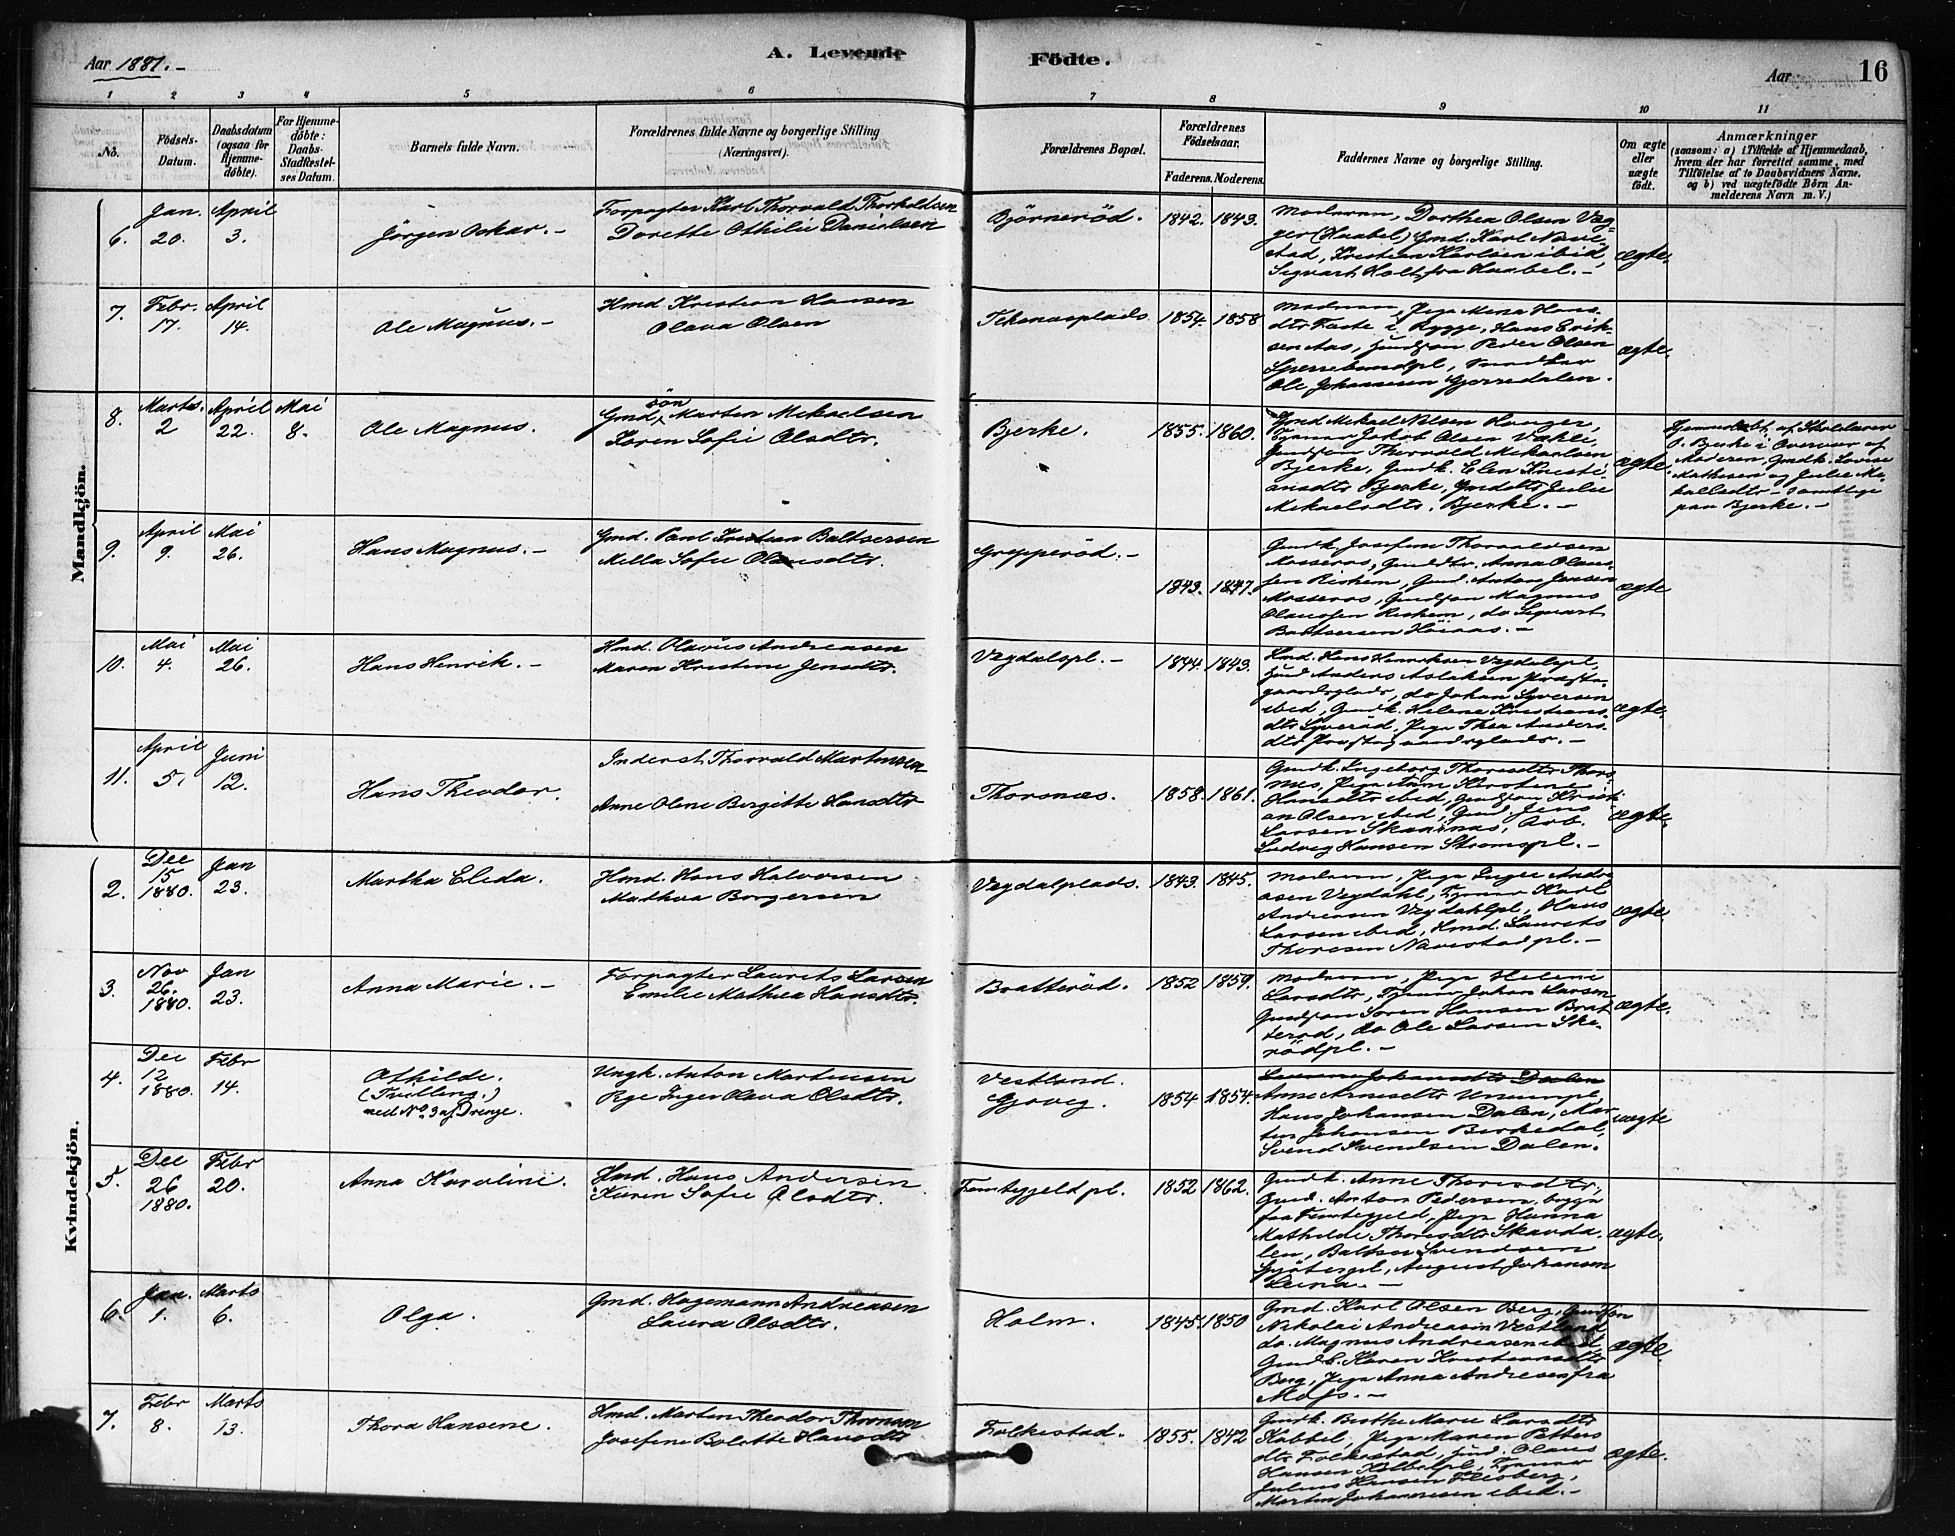 Aar 1881. –
A. Levende
Födte.
Aar
16
1 2 3 4 5 6 7 8 9 10 11
No.
Födsels-
Datum.
Daabsdatum
(ogsaa for
Hjemme-
döbte).
For Hjemme-
döbte:
Daabs-
Stadfæstel-
ses Datum.
Barnets fulde Navn.
Forældrenes fulde Navne og borgerlige Stilling
(Næringsvei).
Forældrenes Bopæl.
Forældrenes
Födselsaar.
Faderens. Moderens.
Faddernes Navne og borgerlige Stilling.
Om ægte
eller
uægte
födt.
Anmærkninger
(saasom: a) i Tilfælde af Hjemmedaab,
hvem der har forrettet samme, med
Tilföielse af to Daabsvidners Navne,
og b) ved uægtefödte Börn An-
melderens Navn m. V.)
Mandkjön.
6.
Jan.
20.
April
3.
Jörgen Oskar. –
Forpagter Karl Thorvald Thorkeldsen
Dorette Othilie Danielsen
Björneröd.
1842. 1843.
Moderen, Dorthea Olsen Væg-
ger (Haabel) Gmd. Karl Nave-
stad, Kristian Karlsen ibid,
Sigvart Holt fra Haabel. –
ægte.
7.
Febr.
17.
April
14.
Ole Magnus. –
Hmd Kristian Hansen
Olava Olsen
Teknæsplads
1854. 1858
Moderen, Pige Mina Hans-
dtr Faste i Rygge, Hans Erik-
sen Aas, Gmdsøn Peder Olsen
Sperrebundpl,
Ole Johannesen Gjorredalen.
ægte.
8.
Marts.
2
April
22.
Mai
8.
Ole Magnus.
Gmd. sön Marten Mikaelsen
Karen Sofie Olsdtr.
Bjerke.
1855. 1860.
Gmd Mikael Nilsen Hauger,
Tjener Jakob Olsen Vakle,
Gmdsøn Thorvald Mikaelsen
Bjerke, Gmdk. Elen Kristi-
ansdtr Bjerke, Gmddtr Julie
Mikaelsdtr. Bjerke. –
ægte.
Hjemmedøbt af Skolelærer
O. Bjerke i Overvær af
Moderen, Gmdk. Lovise
Mathisen og Julie Mi-
kalsdtr – samtlige
paa Bjerke. –
9.
April
9.
Mai
26.
Hans Magnus. –
Gmd. Paul Kristian Baltsersen
Mella Sofie Olausdtr.
Grepperöd. –
1843. 1847.
Gmdk Josefine Thorvaldsen
Mosseros, Gmddtr. Anna Olaus-
sen Riskem, Gmd. Anton Jensen
Mosseros, Gmdsøn Magnus
Olaussen Riskem, do Sigvart
Baltsersen Höiaas. –
ægte
10.
Mai
4.
Mai
26.
Hans Henrik. –
Hmd. Olavus Andreasen
Maren Kristine Jensdtr.
Vegdalspl. –
1844. 1843.
Hmd. Hans Henriksen Vegdalspl,
Hmd Anders Aslaksen Præste-
gaardsplads, do Johan Syversen
ibid, Gmdk. Helene Kristians-
dtr Syveröd, Pige Thea Anders-
dtr Præstegaardsplads. –
ægte.
11.
April
5.
Juni
12.
Hans Theodor.
Inderst Thorvald Martinsen
Anne Oline Bergitte Hansdtr
Thorsnæs.
1858. 1861.
Gmdk. Ingeborg Thoresdtr Thors-
næs, Pige Anne Kirstine
Hansdtr ibid, Gmdsøn Kristi-
an Olsen ibid, Gmd Jens
Larsen Skaarnæs, Arb.
Ludvig Hansen Strømspl. –
ægte.
Kvindekjön.
2.
Dec
15
1880.
Jan
23.
Martha Elida.
Hmd. Hans Halvorsen
Mathea Borgersen
Vegdalplads.
1843. 1845.
Moderen, Pige Inger Andre-
asen Vegdahl, Tjener Karl
Andreasen Vegdahlpl, Olaus
Larsen ibid, Hmd. Laurits
Thoresen Navestadpl. –
ægte
3.
Nov
26.
1880.
Jan
23.
Anna Marie. –
Forpagter Laurits Larsen
Emilie Mathea Hansdtr.
Bratteröd.
1852 1859.
Moderen, Pige Helene
Larsdtr, Tjener Johan Larsen,
Gmdsøn Søren Hansen Brat-
teröd, do Ole Larsen Ske-
rödpl. –
ægte.
4.
Dec
12
1880.
Febr
14.
Othilde.
(Tvilling.)
med No 3 af Drenge.
Ungk. Anton Martinsen
Pge Inger Olava Olsdtr.
Vestland.
Gjøveg.
1854 1854.
Laura Johansdtr Dalen
Anne Arnesdtr Unumpl,
Hans Johansen Dalen, Mar-
tin Johansen Birkedal,
Svend Svendsen Dalen.
uægte
5.
Dec
26
1880.
Febr
20.
Anna Karoline.
Hmd. Hans Andersen
Karen Sofie Olsdtr.
Femtegjeldpl.
1852 1862.
Gmdk. Anne Thoresdtr,
Gmd. Anton Pedersen, begge
fra Femtegjeld, Pige Hanna
Mathilde Thoresdtr Skavda-
len, Baltser Svendsen
August Johansen
ægte.
6.
Jan.
1.
Marts
6.
Olga.
Gmd. Hagemann Andreasen
Laura Olsdtr.
Holm.
1845. 1850
Gmd. Karl Olsen Berg, Gmdsøn
Nikolai Andreasen Vestland,
do. Magnus Andreasen ibid,
Gmdk. Karen Kristiansdtr
Berg, Pige Anna Andresen fra
Moss. –
ægte.
7.
Febr
8.
Marts
13.
Thora Hansene.
Hmd. Marten Theodor Thoresen
Josefine Bolette Hansdtr
Folkestad.
1855. 1842
Gmdk. Berthe Marie Larsdtr
Kabbel, Pige Maren Petters-
dtr Folkestad, Hmd. Olaus
Hansen Kabbelpl, Tjener
Julius Hansen Fleiberg,
Martin Johannesen ibid. –
ægte.